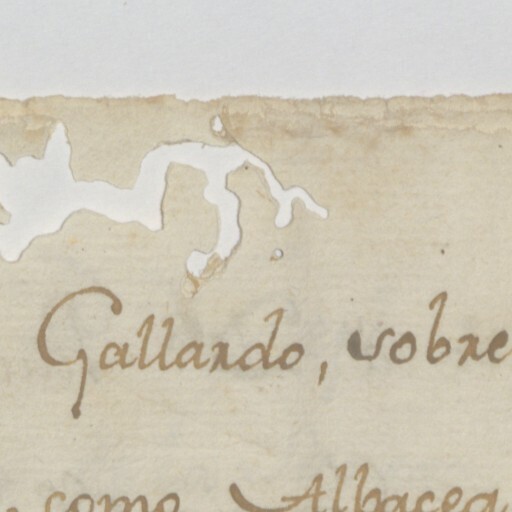 Gallardo, sobre
como Albacea